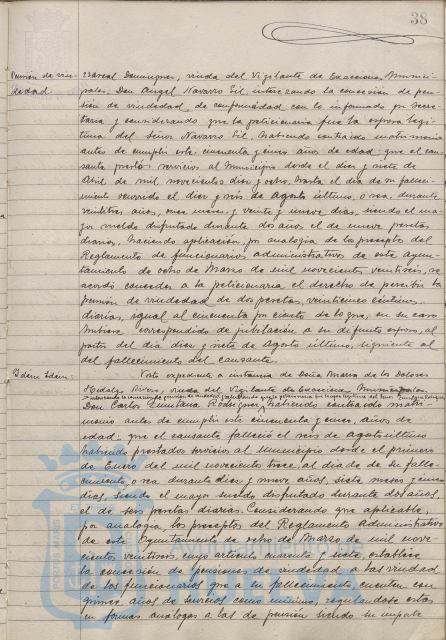 38
Pensión de viu- Marcal Dominguez, viuda del Vigilante de Exacciones Munici-
dedad. pales, Don Angel Navarro Gil, interesando la concesión de pen-
sión de viudedad, de conformidad con lo informado por Secre-
taría y considerando que la peticionaria fue la esposa legí-
tima del Señor Navarro Gil, habiendo contraido matrimonio
antes de cumplir este cincuenta y cinco años de edad; que el cau-
sante prestó servicios al Municipio desde el diez y siete de
Abril de mil novecientos diez y ocho, hasta el día de su falleci-
miento ocurrido el diez y seis de Agosto último, o sea, durante
veintitres años, tres meses y veinte y nueve días, siendo el ma-
yor sueldo disfrutado durante dos años el de nueve pesetas
diarias, haciendo aplicación por analogía de los preceptos del
Reglamento de funcionarios administrativos de este Ayun-
tamiento de ocho de Marzo de mil novecientos veintiseis, se
acordó conceder a la peticionaria el derecho de percibir la
pensión de viudedad de dos pesetas, veinticinco céntimos
diarias, igual al cincuenta por ciento de lo que, en su caso
hubiera correspondido de jubilación a su difunto esposo, a
partir del día diez y siete de Agosto último, siguiente al
del fallecimiento del causante.
Idem Idem: Visto expediente a instancia de Doña Maria de los Dolores
Hidalgo Rivero, viuda del Vigilante de Exacciones Municipales,
Don Carlos Quintana Rodriguez, habiendo contraido matri-
monio antes de cumplir este cincuenta y cinco años de
edad, que el causante falleció el seis de Agosto último
habiendo prestados servicio al Municipio desde el primero
de Enero del mil novecientos trece, al día de su falle-
cimiento, o sea durante diez y nueve años, siete meses y cinco
días, siendo el mayor sueldo disfrutado durante dos años,
el de seis pesetas diarias. Considerando que aplicable,
por analogía, los preceptos del Reglamento Administrativo
de este Ayuntamiento de ocho de Marzo de mil nove-
cientos veintiseis, cuyo artículo cuarenta y siete, establece
la concesión de pensiones de viudedad a las viudas
de los funcionarios que a su fallecimiento, cuenten con
quince años de servicios como mínimo, regulandose estas
en formas análogas a las de pensión siendo su importe